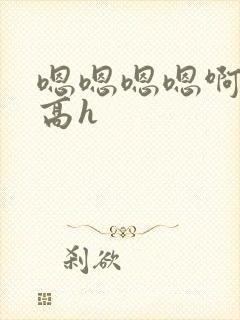 嗯嗯嗯嗯啊
高h
刹欲